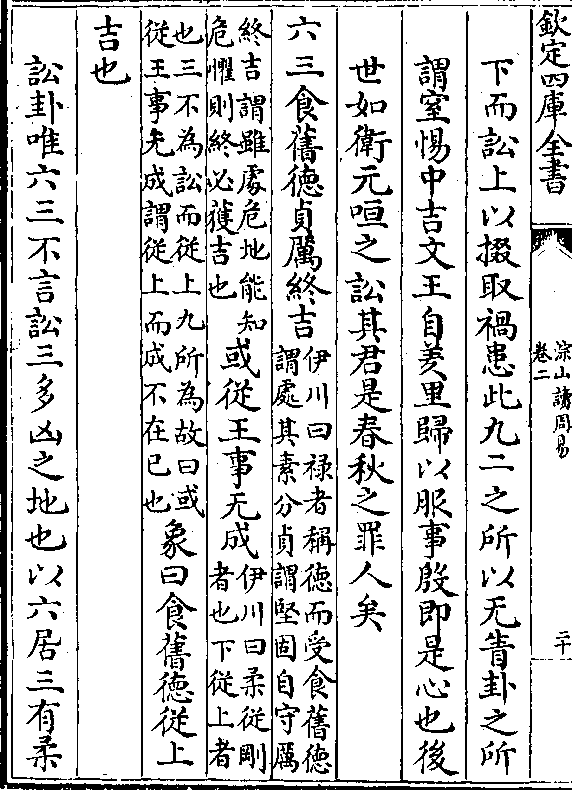 欽定四庫全書
淙山讀周易
卷二
二十
下而訟上以掇取禍患此九二之所以无眚卦之所
謂窒惕中吉文王自羑里歸以服事殷即是心也後
世如衛元咺之訟其君是春秋之罪人矣
六三食舊德貞厲終吉
伊川曰禄者稱德而受食舊德
謂處其素分貞謂堅固自守厲
終吉謂雖處危地能知
危懼則終必獲吉也
或從王事无成
伊川曰柔從剛
者也下從上者
也三不為訟而從上九所為故曰或
從王事无成謂從上而成不在已也
象曰食舊德從上
吉也
訟卦唯六三不言訟三多凶之地也以六居三有柔